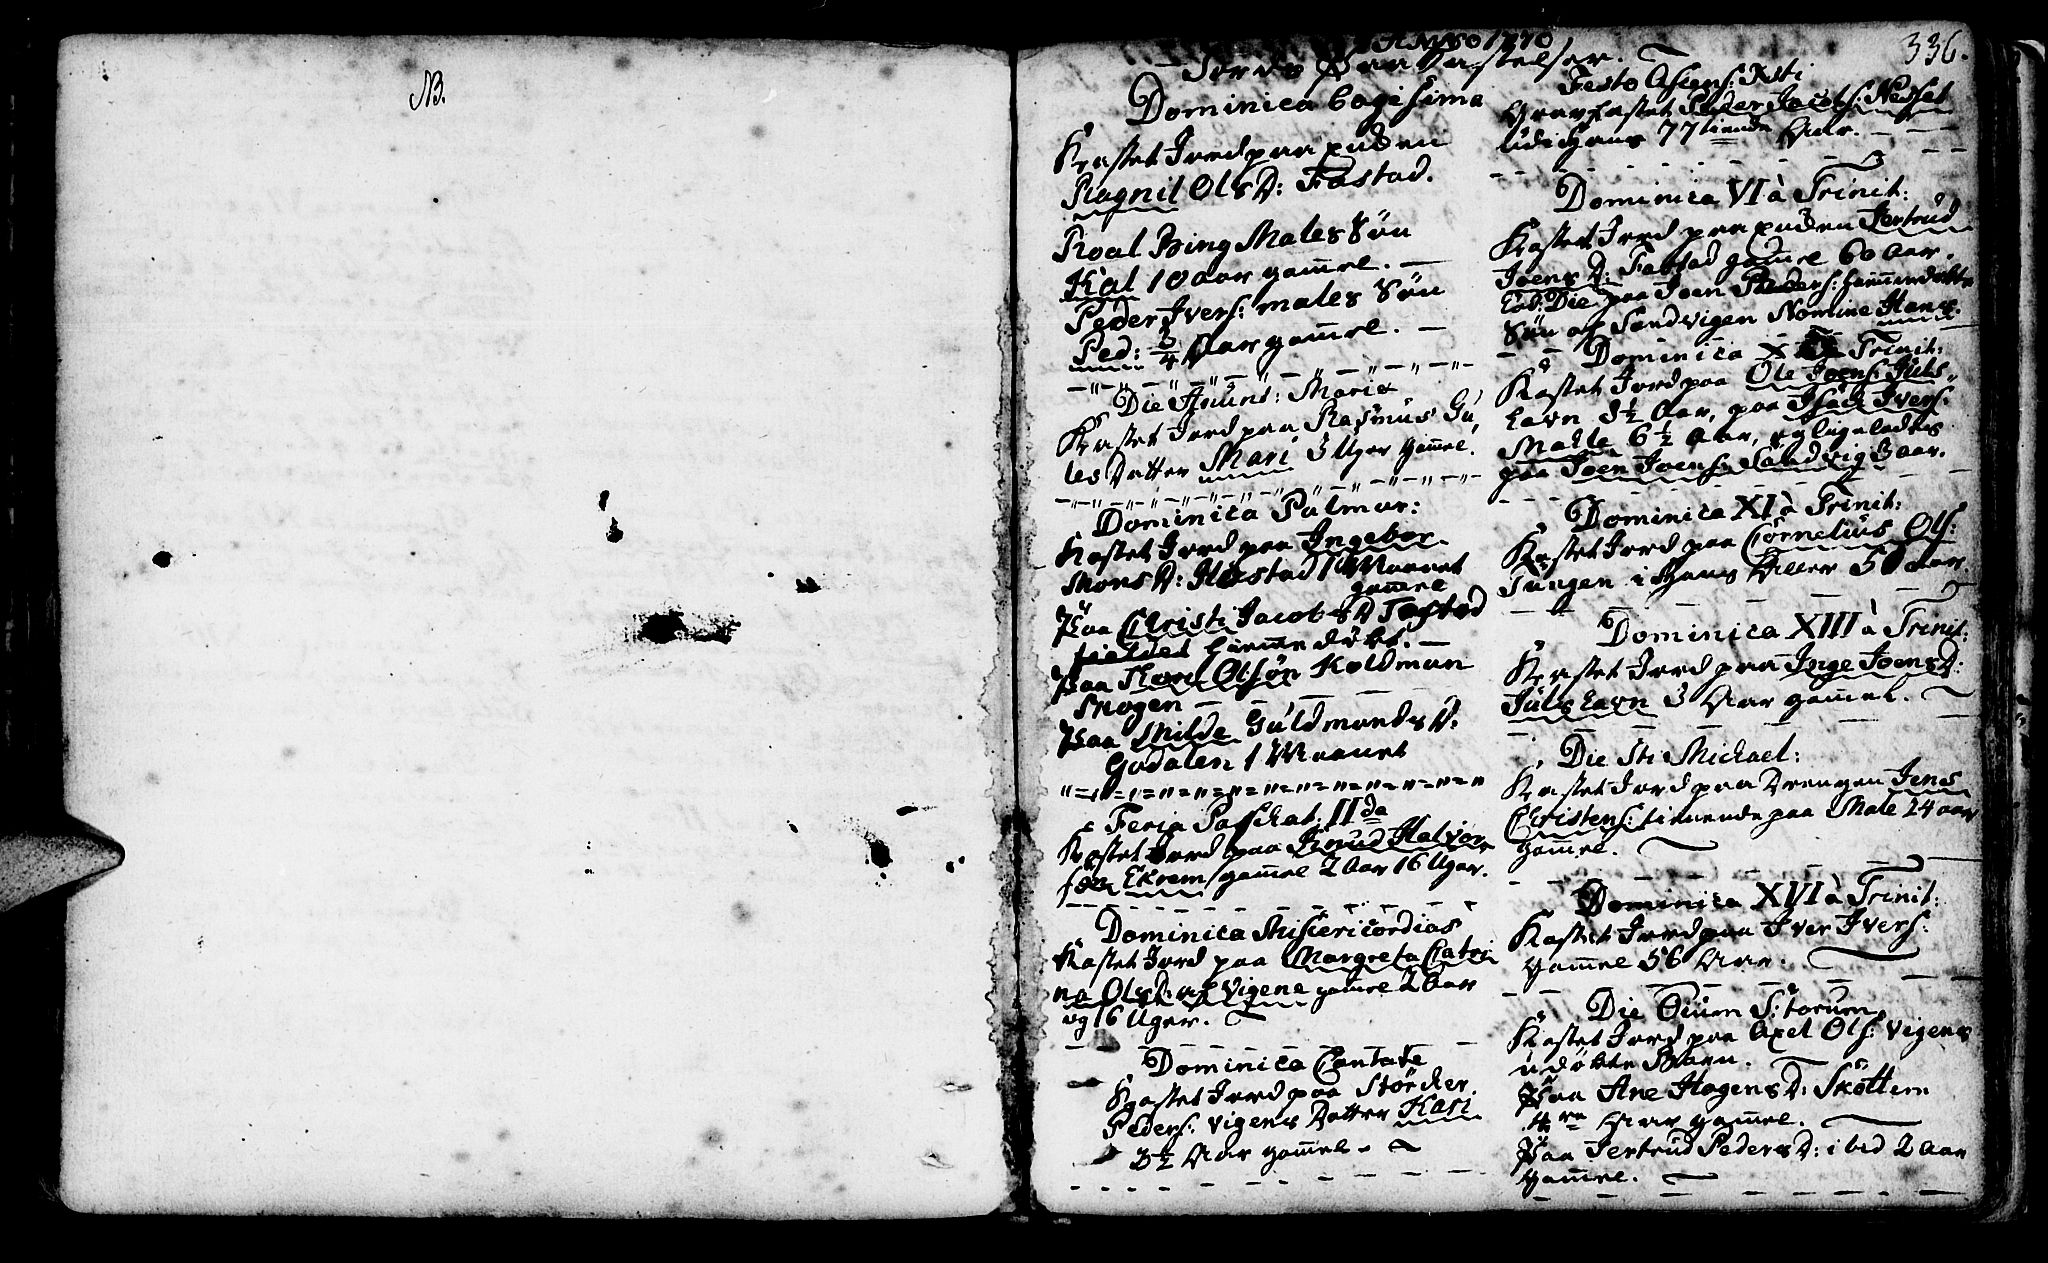 NB.
336.
ANNO 1770
Jords Paa Kastelser.
Dominica 60gesima
Kastet Jord paa
Ragnil Ols D: Fastad.
Roal Bing Males Sön
Kal 10 aar gam̄el.
Peder Ivers: males Sön
Ped: 3/4 Aar gam̄el.
Die Anunt: Mariæ
Kastet Jord paa Rasmus Gu
les Datter Mari 3 Uger gam̄el.
Dominica Palmar:
Kastet Jord paa Ingebor
Mons D: Hostad 1 Maanet
gam̄el
Paa Christi Jacobs D Fastad
fieldet hiem̄e döbt.
Paa Thore Olsön Koldman
Skogen
Paa Milde Guldmands D.
Godalen 1 Maanet
Feria Paschat: IIda
Kastet Jord paa Knud Halvor
sön Ekrem gam̄el 2 Aar 16 Uger.
Dominica Misericordias
Kastet Jord paa Margreta Catri
na Ols D: af Vigene gam̄el 2 Aar
og 6 Uger.
Dominica Cantate
Kastet Jord paa Störcker
Peders: Vigens Datter Kari
3½ Aar gam̄el.
Festo Ascens: Xsti
Gravfastet Peder Jacobs: Nedset
udi Hans 77tiende Aar.
Dominica VI à Trinit:
Kastet Jord paa Jertrud
Joens D: Fastad gam̄el 60 Aar.
Eod: Die paa Joen Peders: hiem̄edöbte
Sön af Sandvigen Nomine Hans.
Dominica X à Trinit:
Kastet Jord paa Ole Joens: Juls
havn 3½ Aar, paa Isach Ivers:
Malle 6½ Aar, og ligeledes
paa Joen Joens: Sandvig 3 aar.
Dominica XI à Trinit:
Kastet Jord paa Cornelius Ols:
Tungen i Hans Alder 50 aar
Dominica XIII à Trinit:
Kastet Jord paa Inge Joens D:
Julshavn 3 Aar gam̄el.
Die Sti Michael:
Kastet Jord paa Drengen Jens
Christens: tienende paa Male 24 aar
gam̄el.
Dominica XVI à Trinit:
Kastet Jord paa Iver Ivers:
gam̄el 56 Aar.
Die Om̄ium S:torum
Kastet Jord paa Axel Ols: Vigens
udöbte Barn.
Paa Ane Hagens D: Skottem
4re Aar gam̄el.
Paa Jertrud Peders D: ibid 2 Aar
gam̄el.